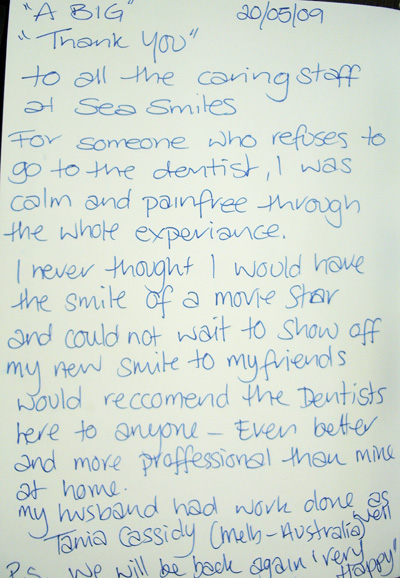 "A BIG" 20/05/09
"Thank You"
to all the caring staff
at Sea Smiles
For someone who refuses to
go to the dentist, I was
calm and painfree through
the whole experiance.
I never thought I would have
the smile of a movie star
and could not wait to show off
my new smile to my friends
would reccomend the Dentists
here to anyone - Even better
and more proffessional than mine
at home.
my husband had work done as
well
Tania Cassidy (Melb-Australia)
P.S. We will be back again "very
Happy"